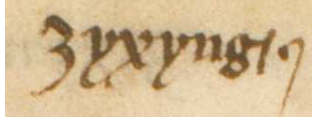 ȝyxyngꝭ